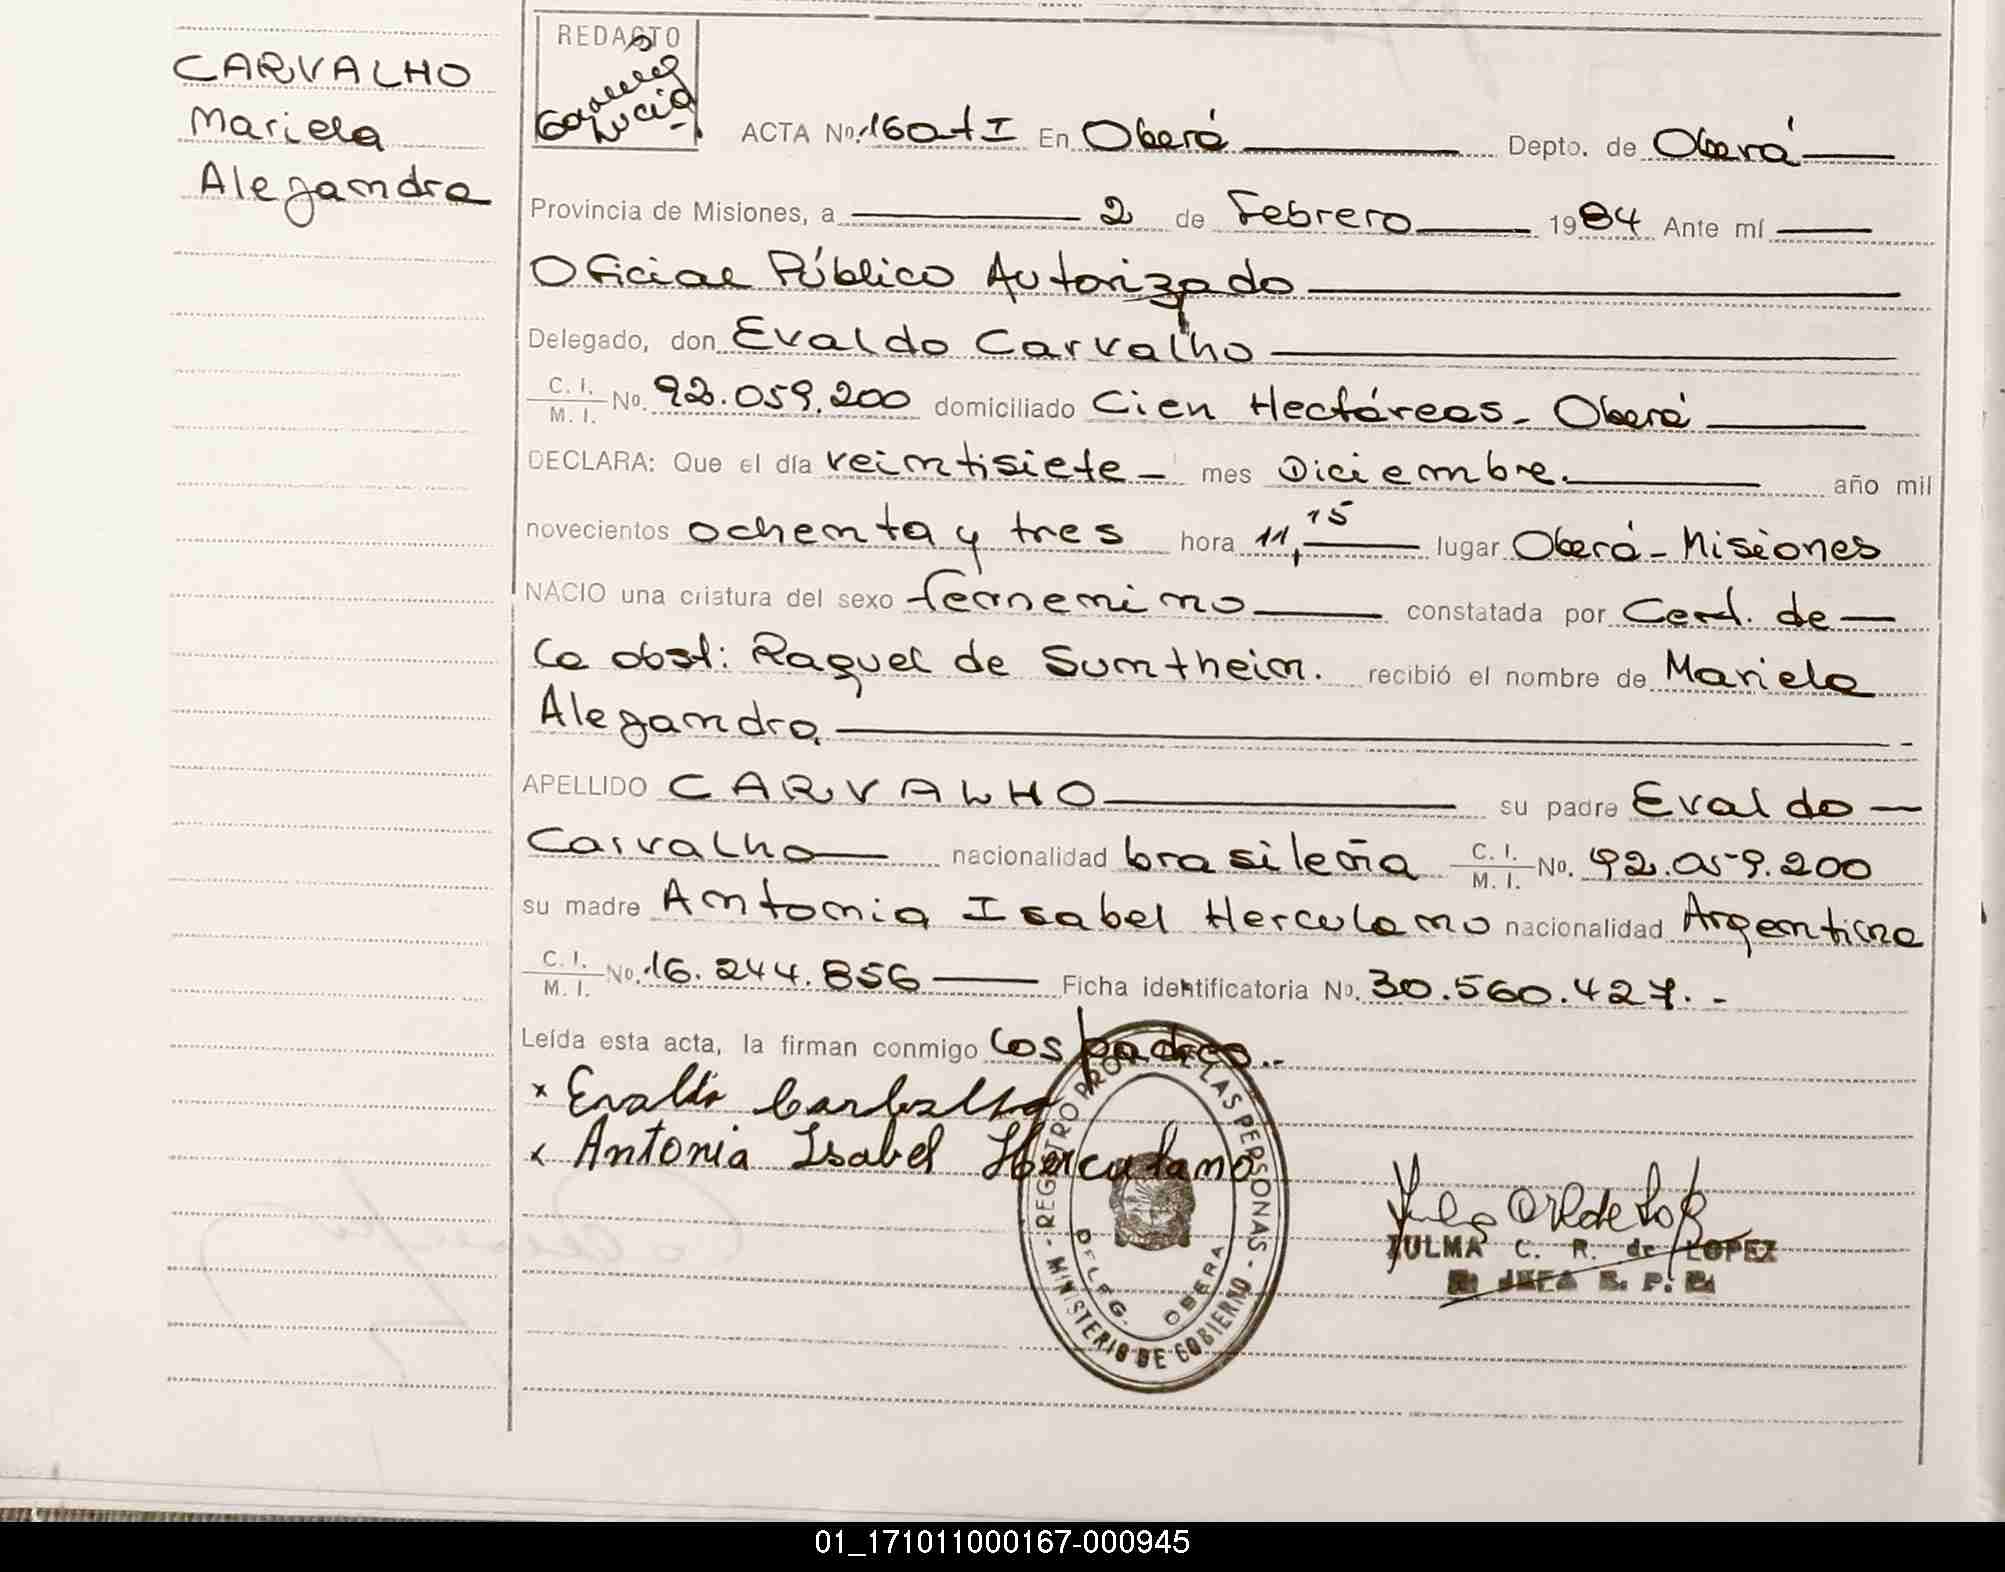 CARVALHO
Mariela
Alejandra
REDACTO
Lucia
ACTA Nº. 160 t I En Oberá Depto. de Oberá
Provincia de Misiones, a 2 de Febrero 1984 Ante mí
Oficial Público Autorizado
Delegado, don Evaldo Carvalho
C. I. / M. I. Nº. 92.059.200 domiciliado Cien Hectáreas - Oberá
DECLARA: Que el día veintisiete - mes Diciembre. año mil
novecientos ochenta y tres hora 11,15 lugar Oberá - Misiones
NACIO una criatura del sexo femenino constatada por Cert. de
la obst: Raquel de Sumtheim. recibió el nombre de Mariela
Alejandra.
APELLIDO CARVALHO su padre Evaldo
Carvalho nacionalidad brasileña C. I. / M. I. Nº. 92.059.200
su madre Antonia Isabel Herculano nacionalidad Argentina
C. I. / M. I. Nº. 16.244.856 Ficha identificatoria Nº. 30.560.427.-
Leída esta acta, la firman conmigo los padres.-
x Evaldo Carbalho
x Antonia Isabel Herculano
REGISTRO PROV. DE LAS PERSONAS - MINISTERIO DE GOBIERNO -
DELEG. OBERA
ZULMA C. R. de LOPEZ
JEFA R. P. P.
01_171011000167-000945